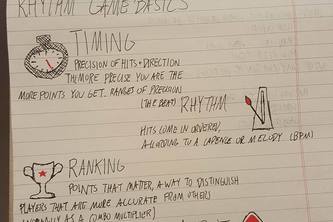 RHYTHM GAME BASICS
TIMING
PRECISION OF HITS + DIRECTION
THE MORE PRECISE YOU ARE THE
MORE POINTS YOU GET. RANGES OF PRECISION
(THE BEAT) RHYTHM
HITS COME IN
ACCORDING TO A CADENCE OR MELODY (BPM)
RANKING
POINTS THAT MATTER, A WAY TO DISTINGUISH
PLAYERS THAT ARE MORE ACCURATE FROM OTHERS
(NORMALLY AS A COMBO MULTIPLIER)